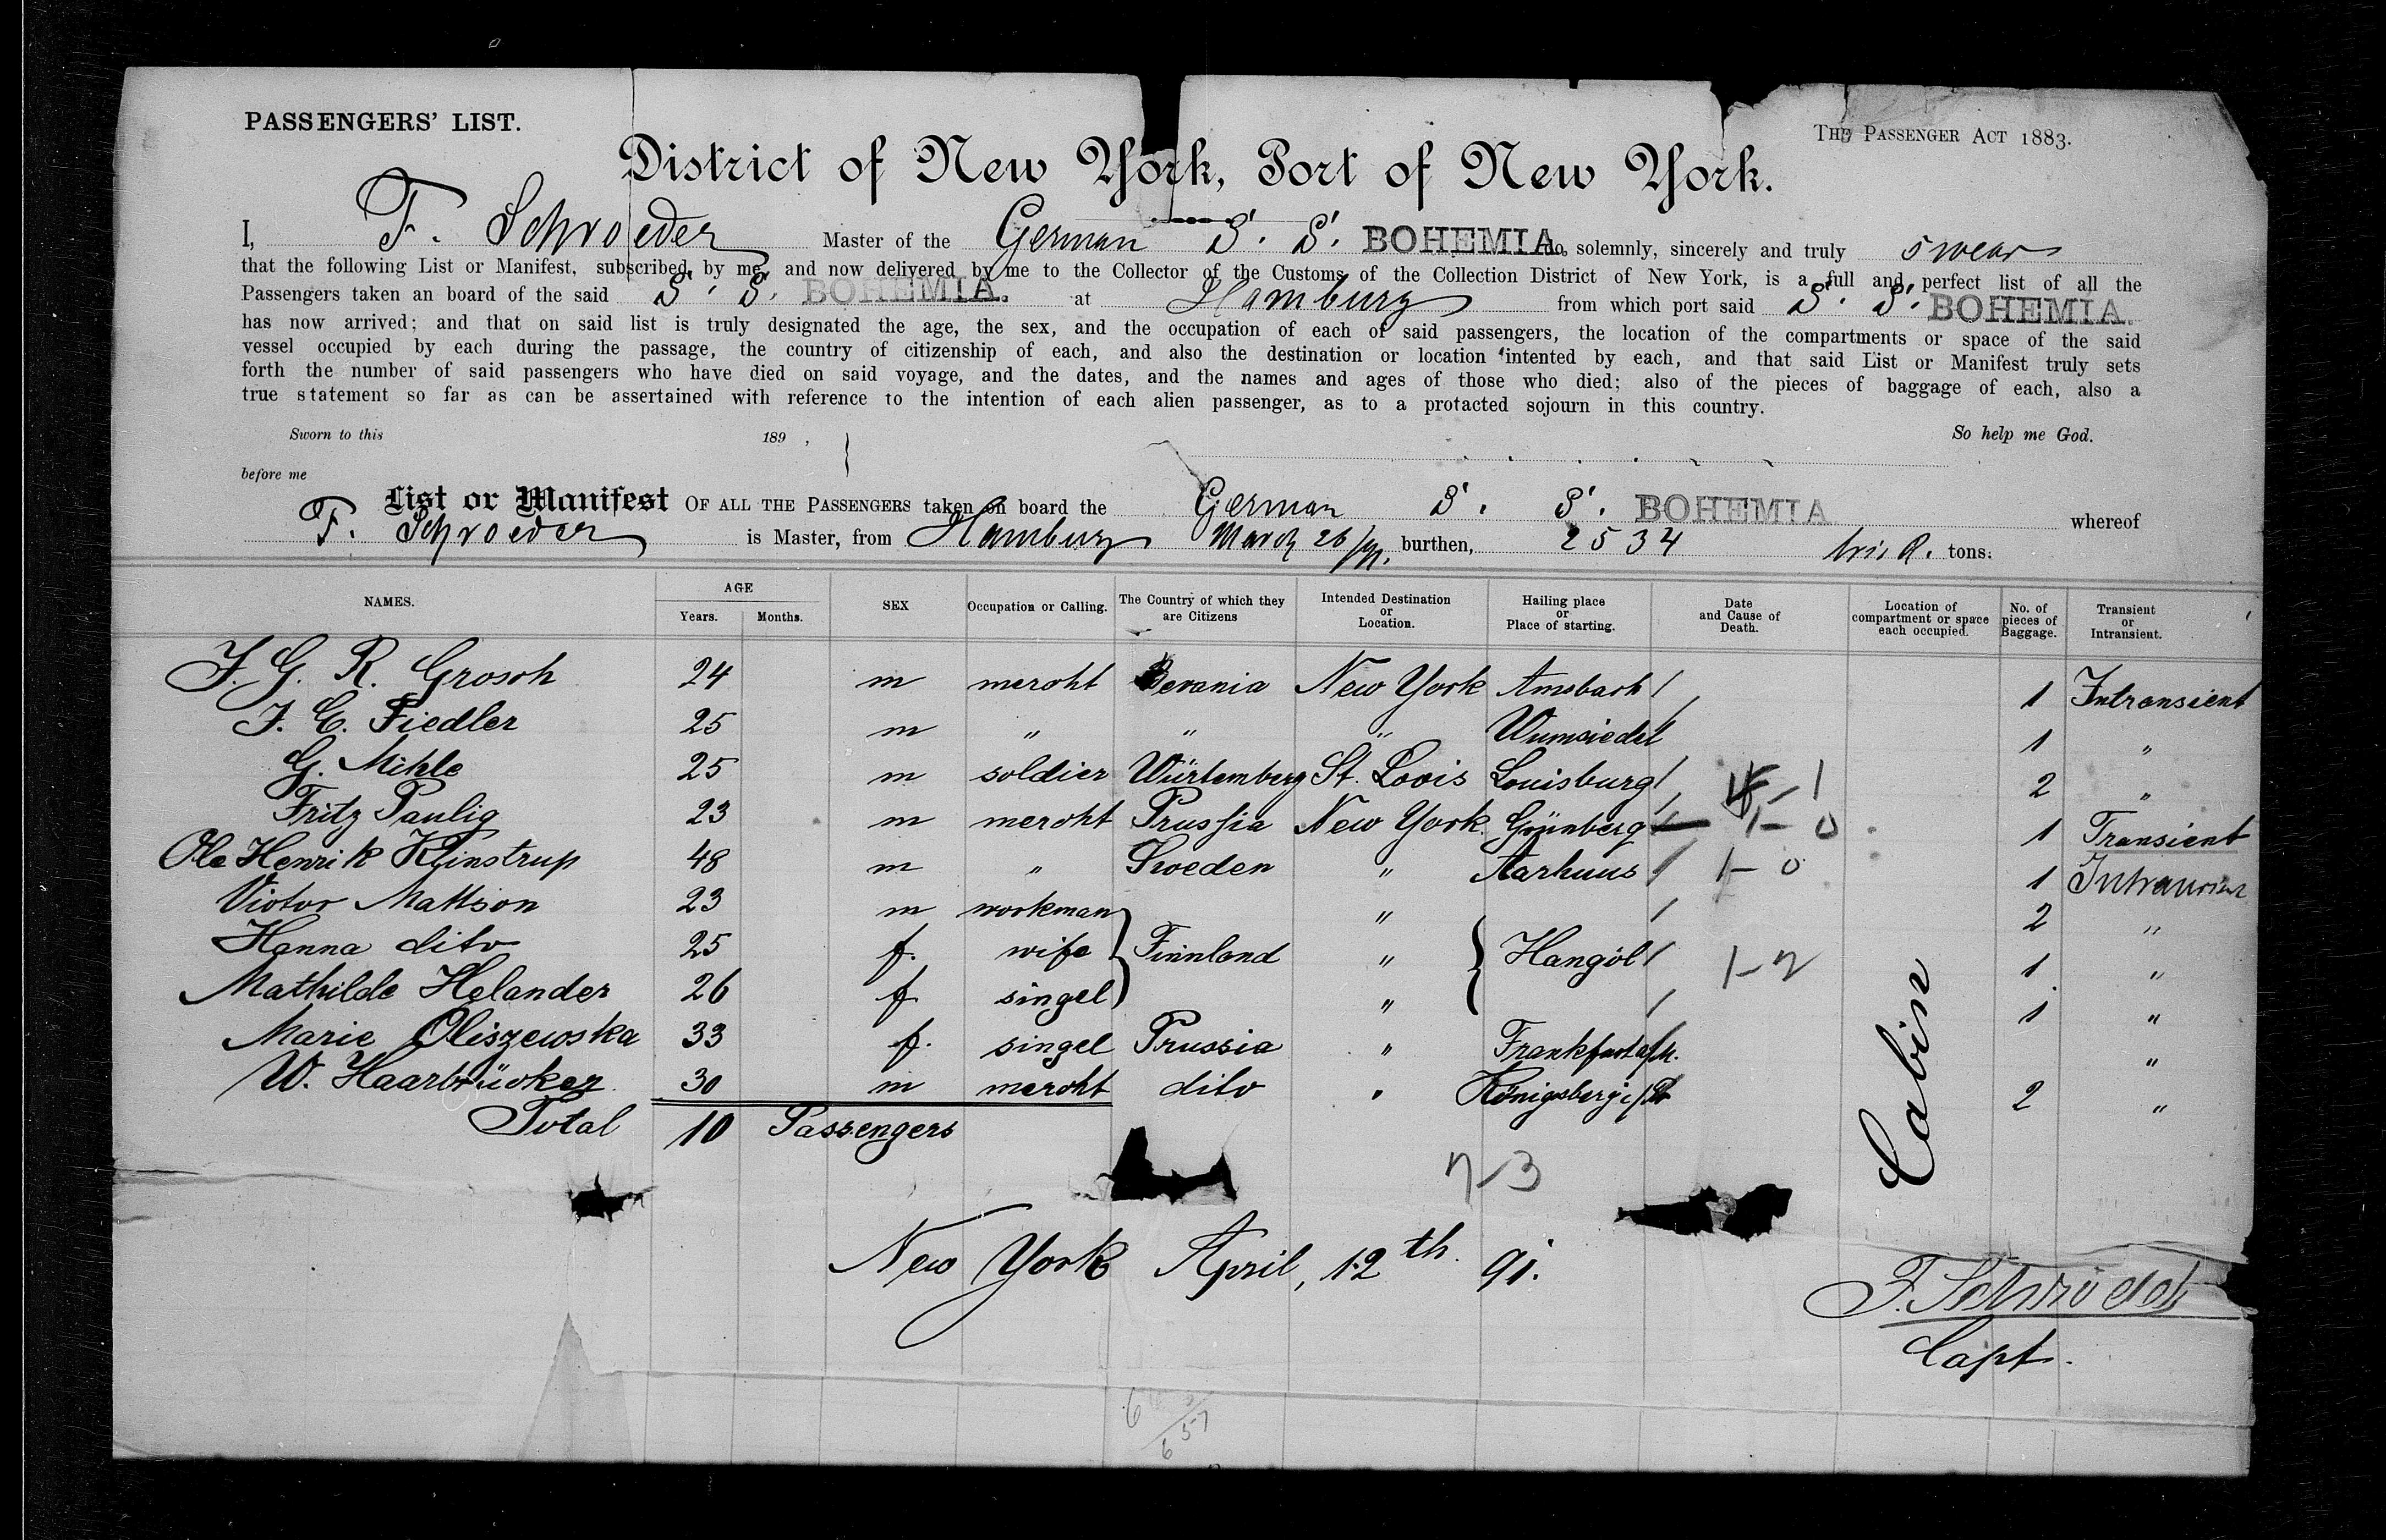 PASSENGERS' LIST.
THE PASSENGER ACT 1883.
District of New York, Port of New York.
I, F. Schroeder Master of the German S. S. BOHEMIA do, solemnly, sincerely and truly swear
that the following List or Manifest, subscribed by me, and now delivered by me to the Collector of the Customs of the Collection District of New York, is a full and perfect list of all the
Passengers taken an board of the said S. S. BOHEMIA. at Hamburg from which port said S. S. BOHEMIA.
has now arrived; and that on said list is truly designated the age, the sex, and the occupation of each of said passengers, the location of the compartments or space of the said
vessel occupied by each during the passage, the country of citizenship of each, and also the destination or location intented by each, and that said List or Manifest truly sets
forth the number of said passengers who have died on said voyage, and the dates, and the names and ages of those who died; also of the pieces of baggage of each, also a
true statement so far as can be assertained with reference to the intention of each alien passenger, as to a protacted sojourn in this country.
Sworn to this 189 , So help me God.
before me
List or Manifest OF ALL THE PASSENGERS taken on board the German S. S. BOHEMIA whereof
F. Schroeder is Master, from Hamburg March 26/91. burthen, 2534 tons.
NAMES. AGE Years. Months. SEX Occupation or Calling. The Country of which they are Citizens Intended Destination or Location. Hailing place or Place of starting. Date and Cause of Death. Location of compartment or space each occupied. No. of pieces of Baggage. Transient or Intransient.
F. G. R. Grosch 24 m mercht Bevania New York Ansbach 1 Intransient
F. E. Fiedler 25 m " " " Wumsiedel 1 "
G. Mihle 25 m soldier Würtemberg St. Lovis Louisburg 1 2 "
Fritz Paulig 23 m mercht Prussia New York. Grünberg 1-0 1 Transient
Ole Henrik Klinstrup 48 m " Sweden " Aarhuus 1-0 1 Intransient
Victor Mattson 23 m workman " 2 "
Hanna dito 25 f. wife Finnland " Hangöl 1-2 1 "
Mathilde Helander 26 f. singel " 1 "
Marie Oliszewska 33 f. singel Prussia " Frankfurt a/M. "
W. Haarbrücker 30 m mercht dito " Königsberg i/Pr 2 "
Cabin
Total 10 Passengers
7-3
New York April, 12th. 91.
F. Schröder
Capt.
6
6 57